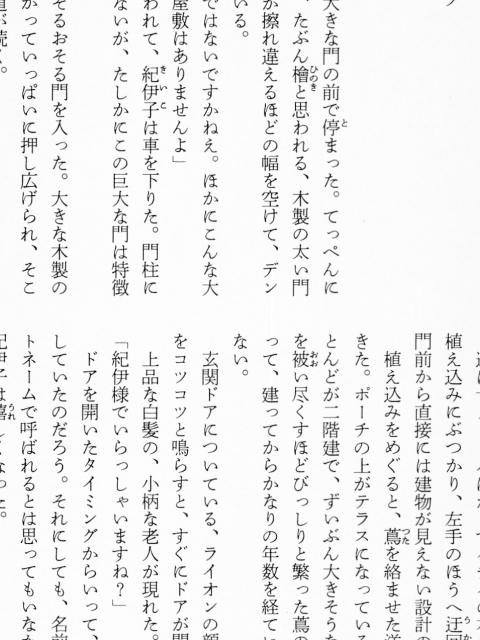 大きな門の前で停まった。てっぺんに
、たぶん檜と思われる、木製の太い門
が擦れ違えるほどの幅を空けて、デン
いる。
ではないですかねえ。ほかにこんな大
屋敷はありませんよ」
われて、紀伊子は車を下りた。門柱に
ないが、たしかにこの巨大な門は特徴
そるおそる門を入った。大きな木製の
がっていっぱいに押し広げられ、そこ
道が続く。
植え込みにぶつかり、左手のほうへ迂回
門前から直接には建物が見えない設計の
植え込みをめぐると、蔦を絡ませた
きた。ポーチの上がテラスになっている
とんどが二階建で、ずいぶん大きそうだ
を被い尽くすほどびっしりと繁った蔦の
って、建ってからかなりの年数を経てい
ない。
玄関ドアについている、ライオンの顔
をコツコツと鳴らすと、すぐにドアが開
上品な白髪の、小柄な老人が現れた。
「紀伊様でいらっしゃいますね？」
ドアを開いたタイミングからいって、
していたのだろう。それにしても、名前
トネームで呼ばれるとは思ってもいなか
紀伊子は嬉しくなった。